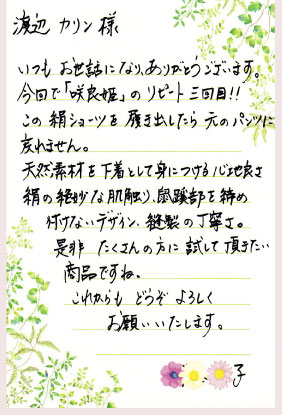 渡辺 カリン 様
いつも お世話になり、ありがとうございます。
今回で「咲良姫」の リピート三回目!!
この 絹ショーツを 履き出したら 元のパンツに
戻れません。
天然素材を下着として身につける心地良さ
絹の絶妙な肌触り、鼠蹊部を締め
付けないデザイン、縫製の丁寧さ。
是非 たくさんの方に 試して 頂きたい
商品ですね、
これからも どうぞ よろしく
お願いいたします。
子